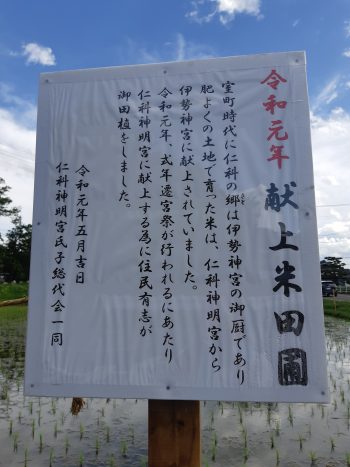 令和元年 献上米田圃
室町時代に仁科の郷は伊勢神宮の御厨であり
肥よくの土地で育った米は、仁科神明宮から
伊勢神宮に献上されていました。
令和元年、式年遷宮祭が行われるにあたり
仁科神明宮に献上する為に住民有志が
御田植をしました。
令和元年五月吉日
仁科神明宮氏子総代会一同